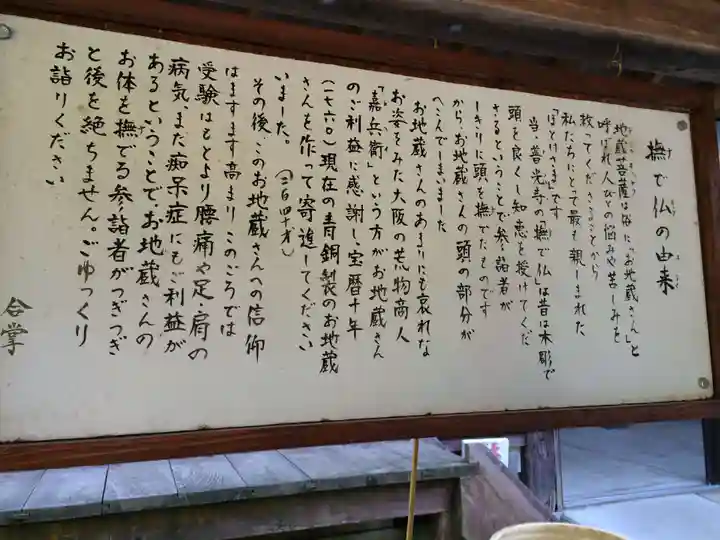 撫で仏の由来
地蔵菩薩は俗に、「お地蔵さん」と
呼ばれ人びとの悩みや苦しみを
救ってくださることから
私たちにとって最も親しまれた
「ほとけさま」です
当、普光寺の「撫で仏」は昔は木彫で
頭を良くし知恵を授けてくだ
さるということで参詣者が
しきりに頭を撫でたものです
から、お地蔵さんの頭の部分が
へこんでしまいました
お地蔵さんのあまりにも哀れな
お姿をみた大阪の荒物商人
「嘉兵衛」という方がお地蔵さん
のご利益に感謝し、宝暦十年
(一七六〇)現在の青銅製のお地蔵
さんを作って寄進してください
いました。(二百四十才)
その後、このお地蔵さんへの信仰
はますます高まりこのごろでは
受験はもとより腰痛や足・肩の
病気、また痴呆症にもご利益が
あるということで、お地蔵さんの
お体を撫でる参詣者がつぎつぎ
と後を絶ちません。ごゆっくり
お詣りください
合掌